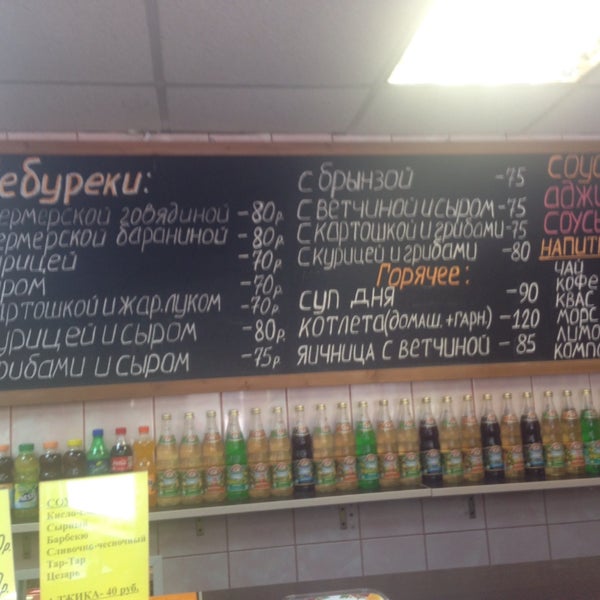 ебуреки:
ермерской говядиной -80р.
ермерской бараниной -80р.
урицей -70р.
ром -70р.
артошкой и жар.луком -70р.
урицей и сыром -80р.
рибами и сыром -75р.
с брынзой -75
с ветчиной и сыром -75
с картошкой и грибами -75
с курицей и грибами -80
Горячее:
суп дня -90
котлета(домаш.+гарн.) -120
яичница с ветчиной - 85
соус
аджи
соусы
напит
чай
кофе
квас
морс
лимо
компо
СОУ
Кисло-
Сырный
Барбекю
Сливочно-чесночный
Тар-Тар
Цезарь
АДЖИКА- 40 руб.